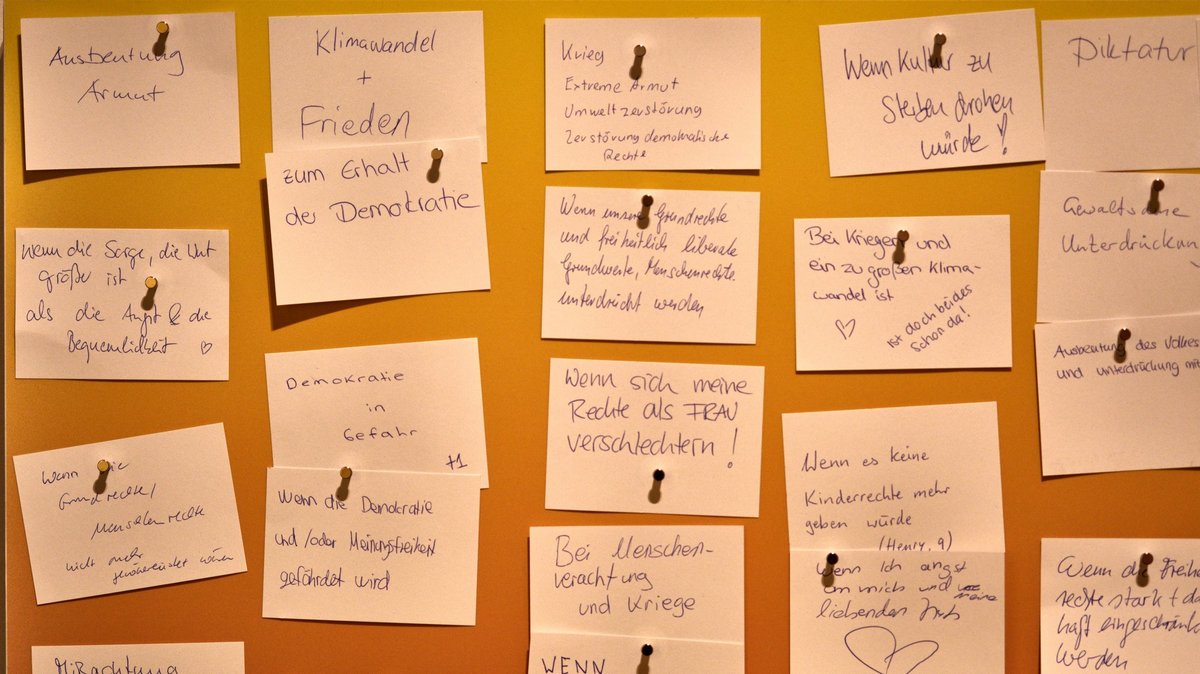 Ausbeutung
Armut
Wenn die Sorge, die Wut
größer ist
als die Angst & die
Bequemlichkeit
Wenn die
Grundrechte/
Menschenrechte
nicht mehr
gewährleistet wären
Mißachtung
Klimawandel
+
Frieden
zum Erhalt
der Demokratie
Demokratie
in
Gefahr
+1
Wenn die Demokratie
und/oder Meinungsfreiheit
gefährdet wird
Krieg
Extreme Armut
Umweltzerstörung
Zerstörung demokratische
Rechte
Wenn unsere Grundrechte
und freiheitlich liberale
Grundwerte, Menschenrechte
unterdrückt werden
Wenn sich meine
Rechte als FRAU
verschlechtern!
Bei Menschen-
verachtung
und Kriege
WENN
Wenn Kultur zu
Sterben drohen
würde!
Bei Kriegen und
ein zu großen Klima-
wandel ist
ist doch beides
schon da!
Wenn es keine
Kinderrechte mehr
geben würde
(Henry, 9)
Wenn ich angst
um mich und meine
liebenden hab
Diktatur
Gewaltsame
Unterdrückun
Ausbeutung des Volkes
und unterdrückung mit
Wenn die Freihe
rechte stark + da
haft eingeschränk
werden